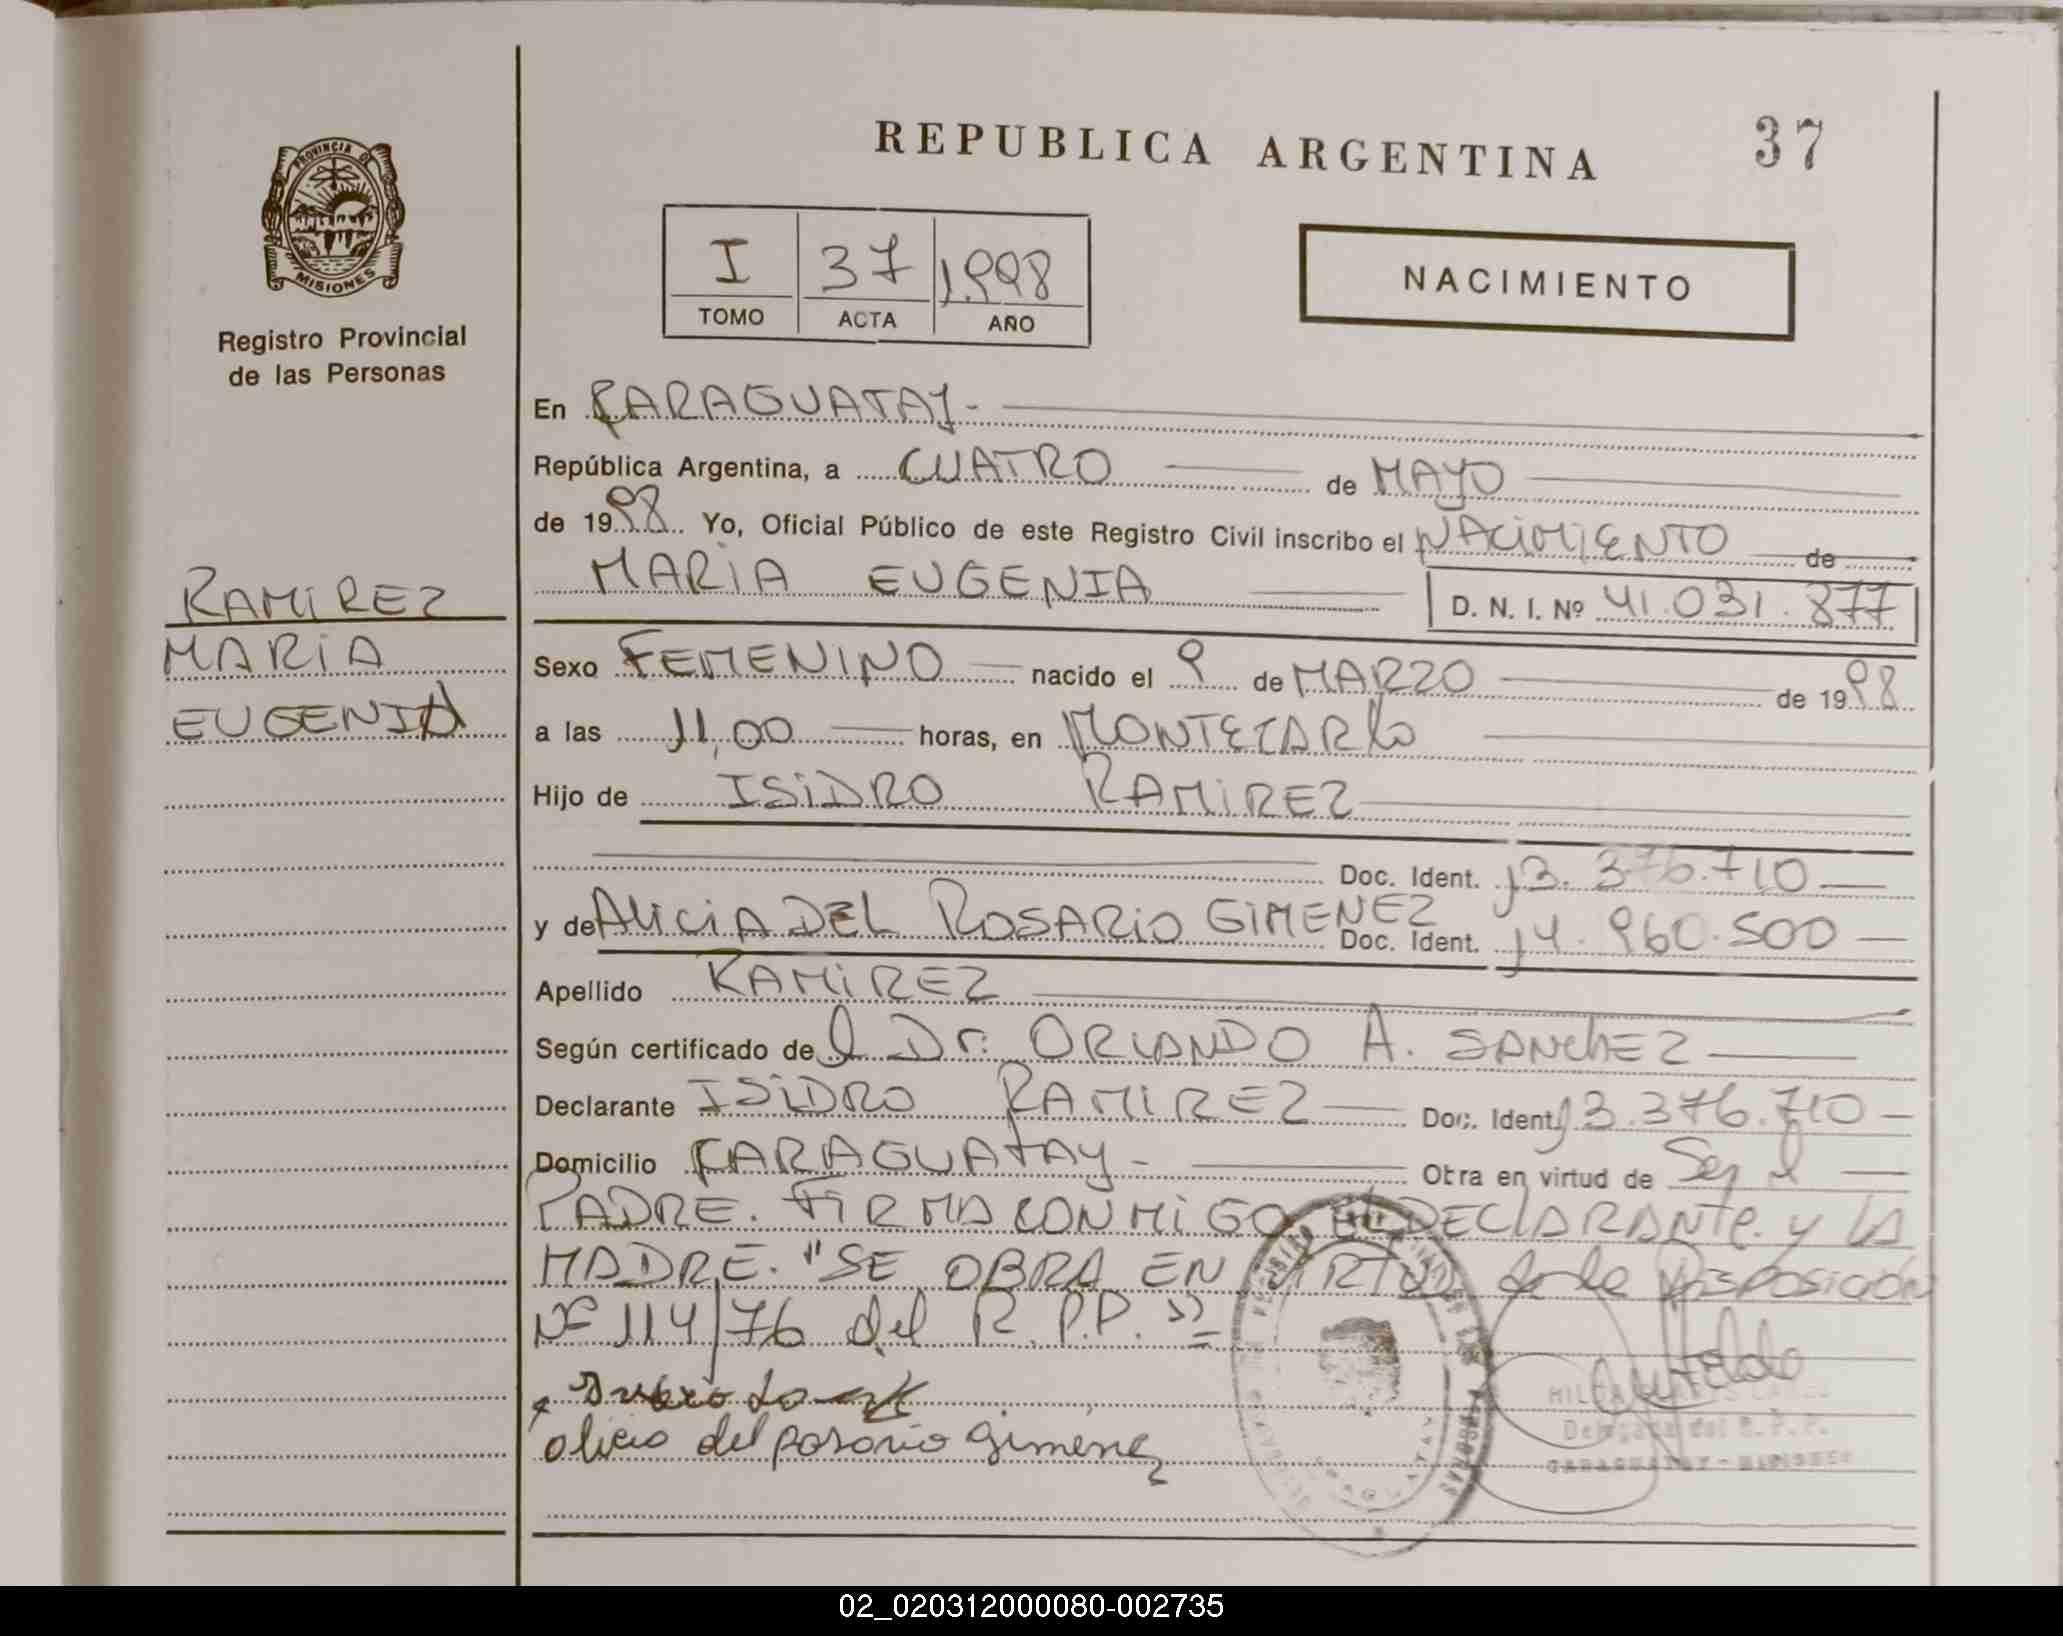 REPUBLICA ARGENTINA
37
PROVINCIA DE
MISIONES
Registro Provincial
de las Personas
I 37 1.998
TOMO ACTA AÑO
NACIMIENTO
En CARAGUATAY.-
República Argentina, a CUATRO de MAYO
de 1998 Yo, Oficial Público de este Registro Civil inscribo el NACIMIENTO de
MARIA EUGENIA D. N. I. Nº 41.031.877
RAMIREZ
MARIA
EUGENIA
Sexo FEMENINO nacido el 9 de MARZO de 1998
a las 11,00 horas, en MONTECARLO
Hijo de ISIDRO RAMIREZ
Doc. Ident. 13.376.710
y de ALICIA DEL ROSARIO GIMENEZ Doc. Ident. 14.960.500
Apellido RAMIREZ
Según certificado del Dr. ORLANDO A. SANCHEZ
Declarante ISIDRO RAMIREZ Doc. Ident. 13.376.710
Domicilio CARAGUATAY.- Obra en virtud de Ser el
PADRE. FIRMA CONMIGO EL DECLARANTE y LA
MADRE. "SE OBRA EN VIRTUD de la DISPOSICIÓN
Nº 114/76 del R.P.P."=
alicia del rosario gimenez
Delegada del R.P.P.
CARAGUATAY - MISIONES
02_020312000080-002735